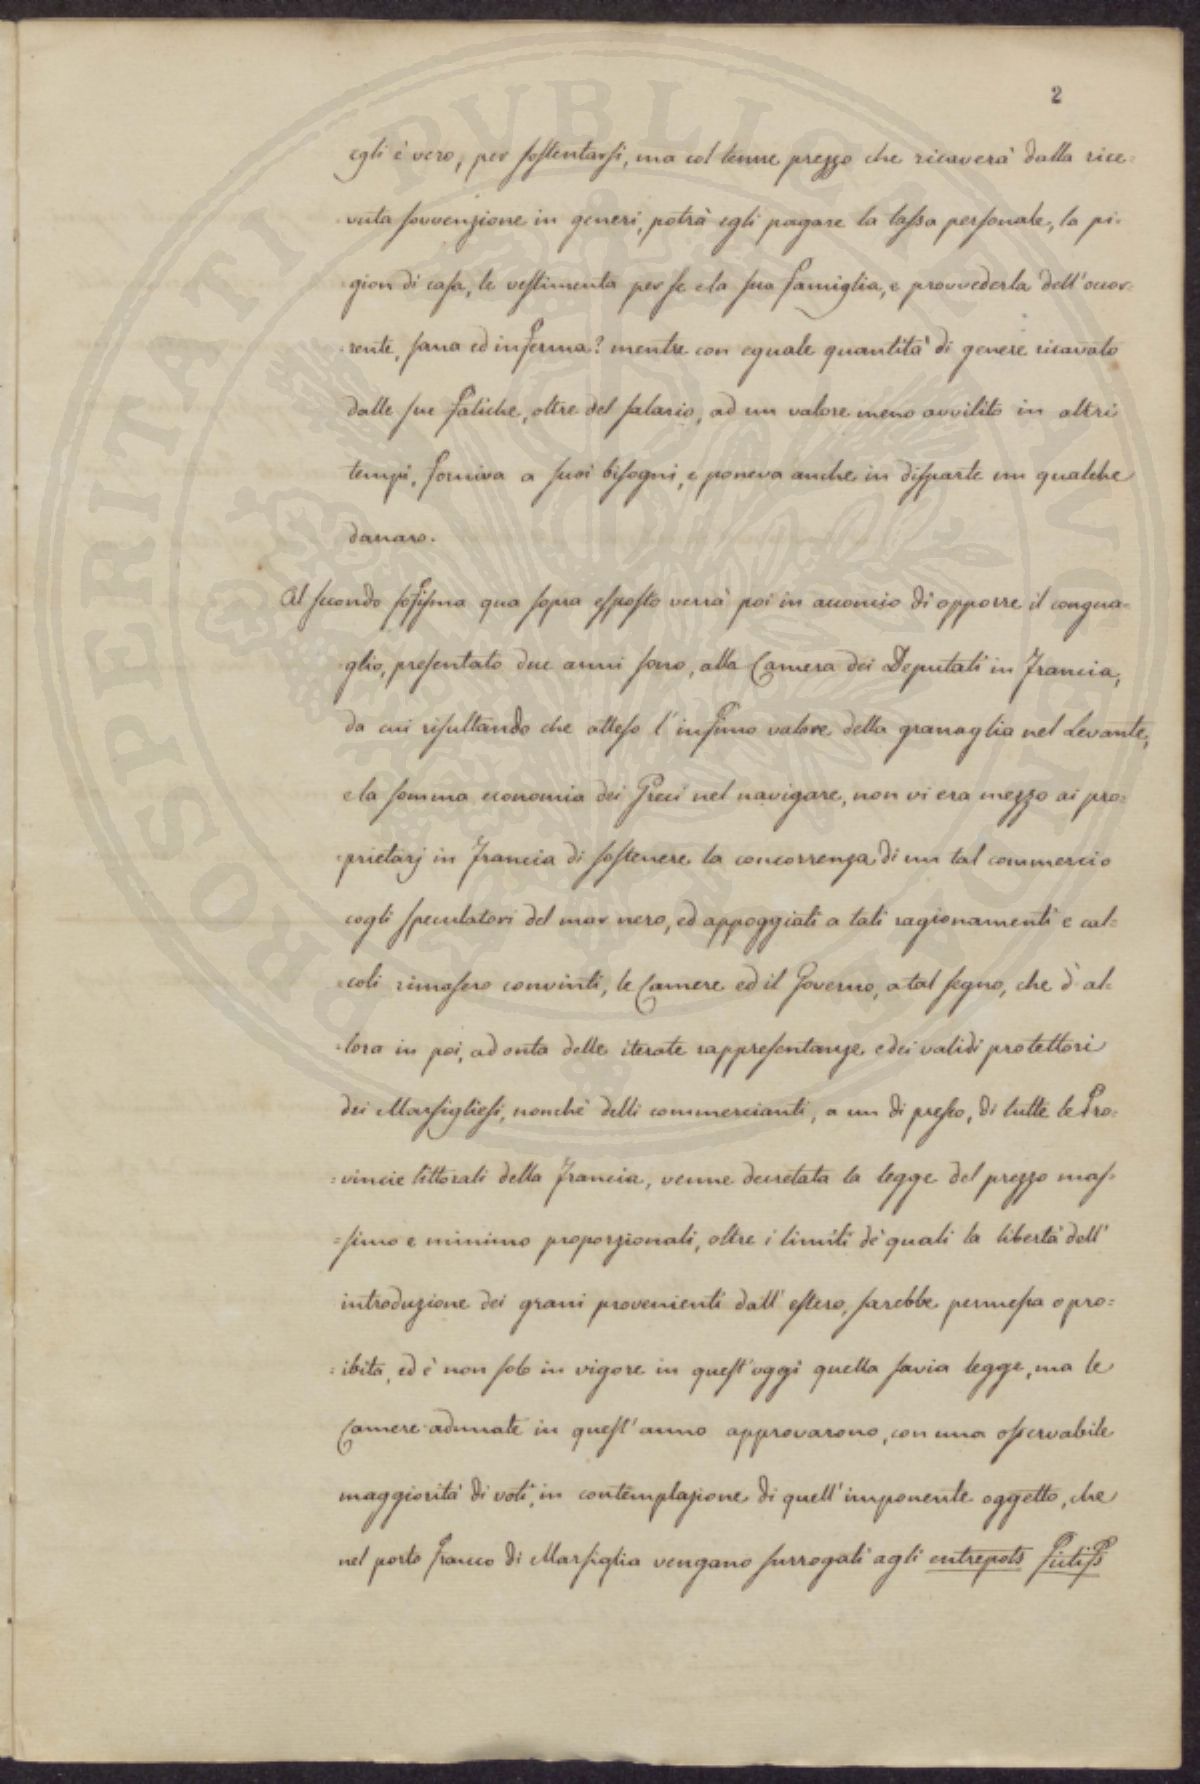 PROSPERITATI PVBLICE AVGENDAE
2
egli è vero, per sostentarsi, ma col tenue prezzo che ricaverà dalla rice=
=vuta sovvenzione in generi, potrà egli pagare la tassa personale, la pi=
=gion di casa, le vestimenta per se e la sua famiglia, e provvederla dell'occor=
=rente, sana ed inferma? mentre con eguale quantità di genere ricavato
dalle sue fatiche, oltre del salario, ad un valore meno avvilito in altri
tempi, forniva a suoi bisogni, e poneva anche in disparte un qualche
danaro.
Al secondo sofisma qua sopra esposto verrà poi in acconcio di opporre il congua=
=glio, presentato due anni sono, alla Camera dei Deputati in Francia,
da cui risultando che atteso l'infimo valore della granaglia nel Levante,
e la somma economia dei Greci nel navigare, non vi era mezzo ai pro=
=prietarj in Francia di sostenere la concorrenza di un tal commercio
cogli speculatori del mar nero, ed appoggiati a tali ragionamenti e cal=
=coli rimasero convinti, le Camere ed il Governo, a tal segno, che d'al=
=lora in poi, ad onta delle iterate rappresentanze e dei validi protettori
dei Marsigliesi, nonchè delli commercianti, a un di presso, di tutte le Pro=
=vincie littorali della Francia, venne decretata la legge del prezzo mas=
=simo e minimo proporzionali, oltre i limiti de' quali la libertà dell'
introduzione dei grani provenienti dall'estero, sarebbe permessa o pro=
=ibita, ed è non solo in vigore in quest'oggi quella savia legge, ma le
Camere adunate in quest'anno approvarono, con una osservabile
maggiorità di voti, in contemplazione di quell'imponente oggetto, che
nel porto franco di Marsiglia vengano surrogati agli entrepots fictifs